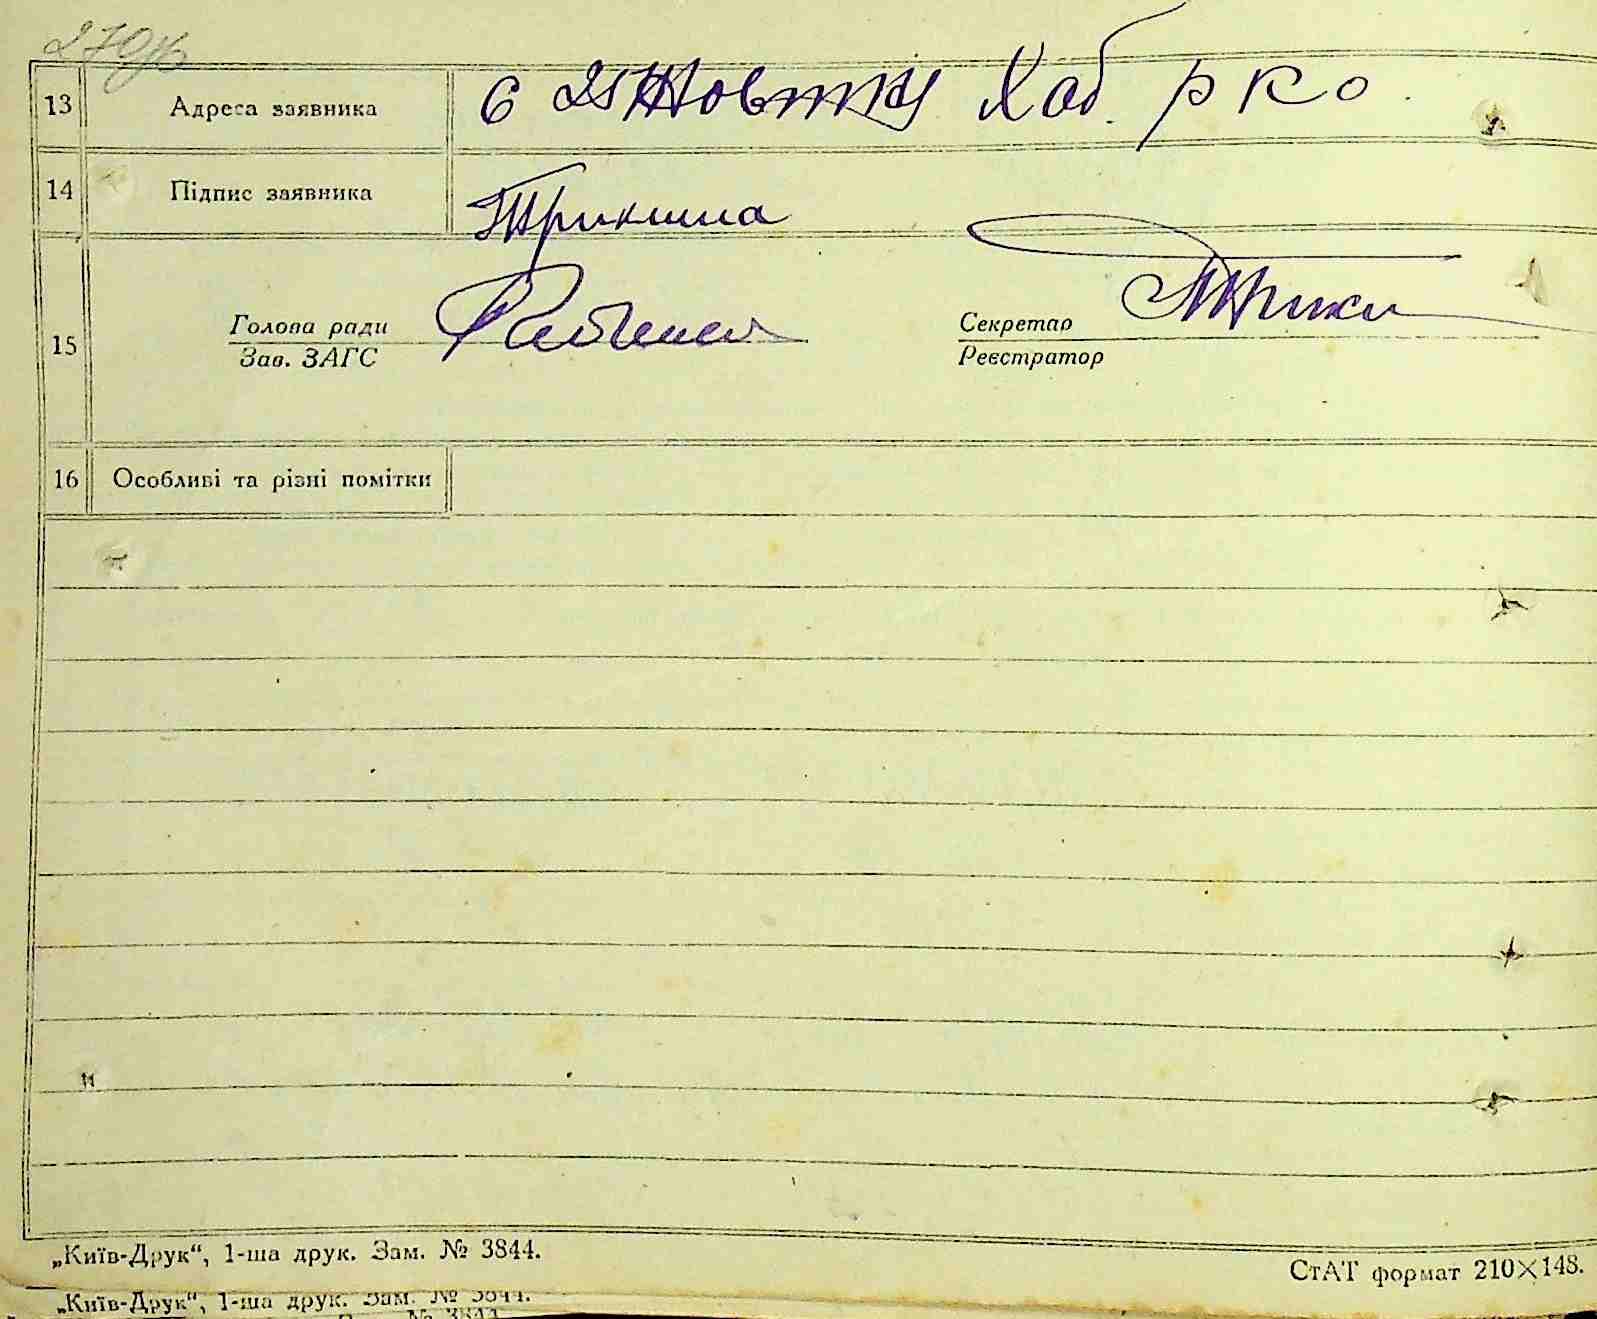 270зв
13 Адреса заявника с Жовтки Хаб. рко
14 Підпис заявника Трикиша
15 Голова ради
Зав. ЗАГС
Секретар
Реєстратор
16 Особливі та різні помітки
„Київ-Друк“, 1-ша друк. Зам. № 3844.
СтАТ формат 210×148.
„Київ-Друк“, 1-ша друк. Зам. № 3844.
№ 3844